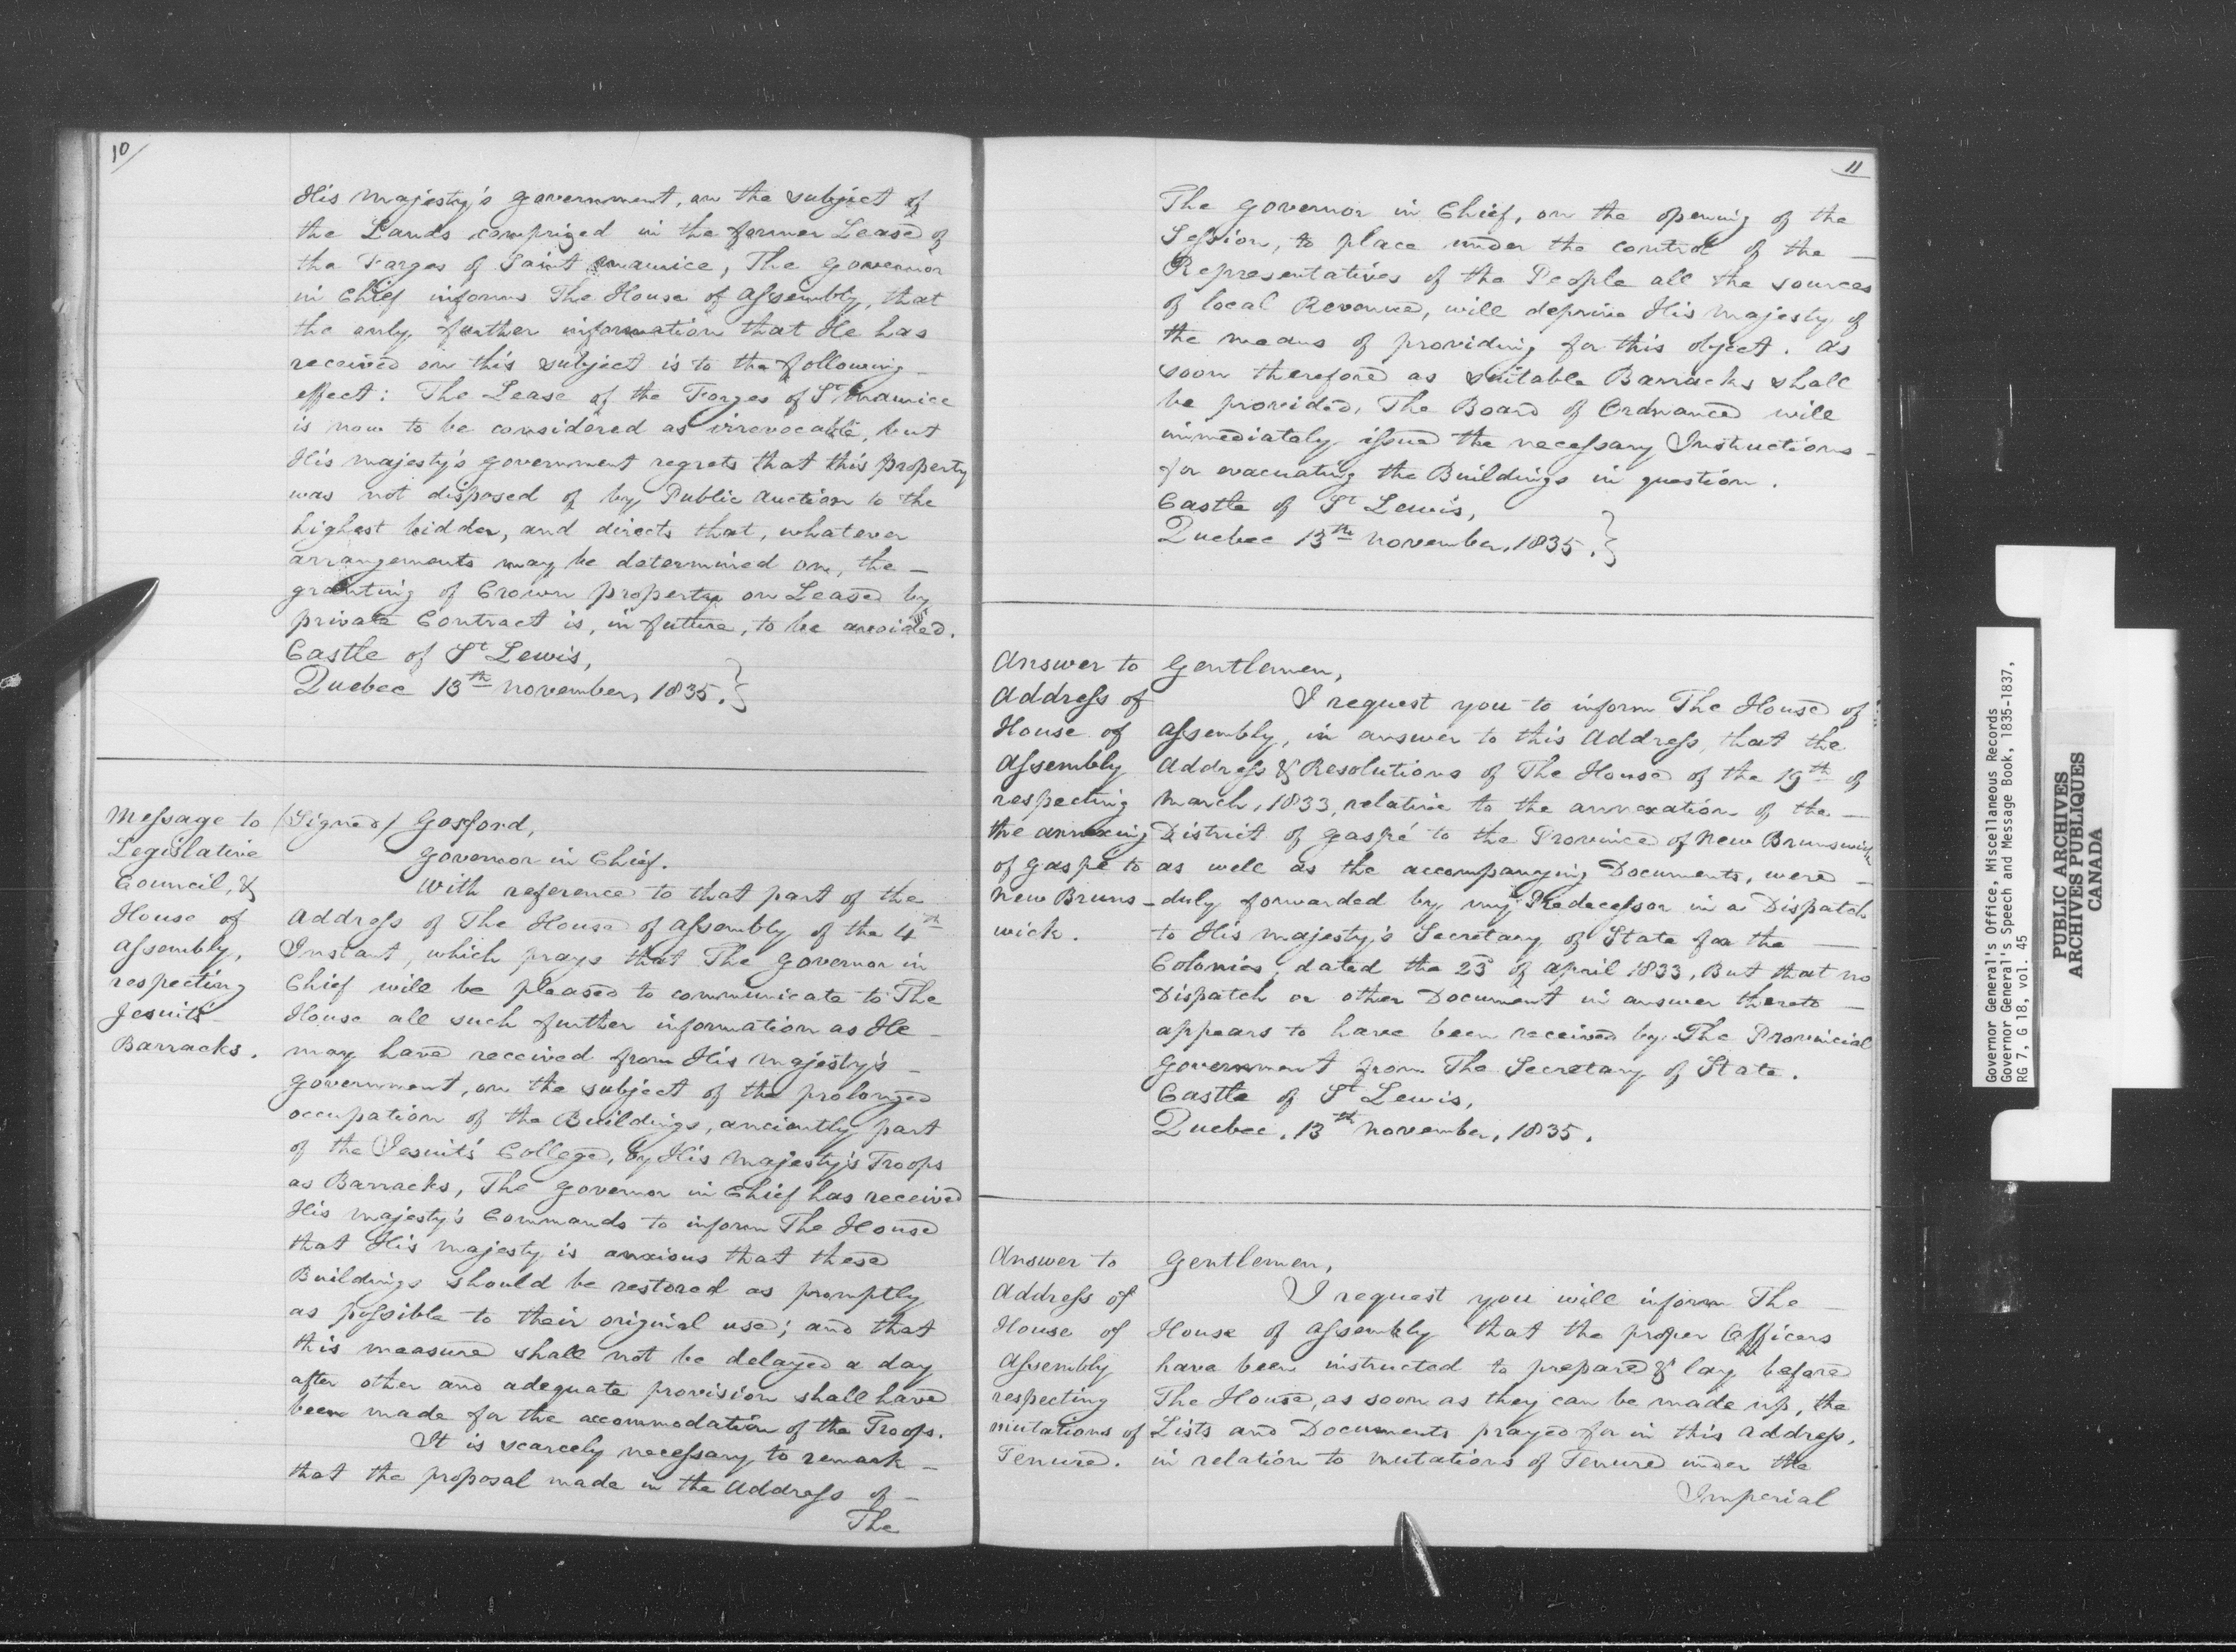 10
His Majesty's Government, on the subject of
the Lands comprized in the former Lease of
the Forges of Saint Maurice, The Governor
in Chief informs The House of Assembly, that
the only further information that He has
received on this subject is to the following
effect: The Lease of the Forges of St Maurice
is now to be considered as irrevocable, but
His Majesty's Government regrets that this property
was not disposed of by Public Auction to the
highest bidder, and directs that, whatever
arrangements may be determined on, the —
granting of Crown property on Lease by
private Contract is, in future, to be avoided.
Castle of St Lewis,
Quebec 13th November, 1835.}
Message to
Legislative
Council, &
House of
Assembly,
respecting
Jesuits
Barracks.
(Signed) Gosford,
Governor in Chief.
With reference to that part of the
Address of The House of Assembly of the 4th
Instant, which prays that The Governor in
Chief will be pleased to communicate to The
House all such further information as He
may have received from His Majesty's —
Government, on the subject of the prolonged
occupation of the Buildings, anciently part
of the Jesuit's College, by His Majesty's Troops
as Barracks, The Governor in Chief has received
His Majesty's Commands to inform The House
that His Majesty is anxious that these
Buildings should be restored as promptly
as possible to their original use; and that
this measure shall not be delayed a day
after other and adequate provision shall have
been made for the accommodation of the Troops.
It is scarcely necessary to remark —
that the proposal made in the Address of —
The
11
The Governor in Chief, on the opening of the
Session, to place under the control of the —
Representatives of the People all the sources
of local Revenue, will deprive His Majesty of
the means of providing for this object. As
soon therefore as suitable Barracks shall
be provided, The Board of Ordnance will
immediately issue the necessary Instructions —
for evacuating the Buildings in question.
Castle of St Lewis,
Quebec 13th November, 1835.}
Answer to
Address of
House of
Assembly
respecting
the annexing
of Gaspé to
New Bruns-
wick.
Gentlemen,
I request you to inform The House of
Assembly, in answer to this Address, that the
Address & Resolutions of The House of the 19th of
March, 1833, relative to the annexation of the —
District of Gaspé to the Province of New Brunswick
as well as the accompanying Documents, were —
duly forwarded by my Predecessor in a Dispatch
to His Majesty's Secretary of State for the —
Colonies, dated the 23d of April 1833, But that no
Dispatch or other Document in answer thereto —
appears to have been received by The Provincial
Government from The Secretary of State.
Castle of St Lewis,
Quebec, 13th November, 1835.
Answer to
Address of
House of
Assembly
respecting
mutations of
Tenure.
Gentlemen,
I request you will inform The —
House of Assembly that the proper Officers
have been instructed to prepare & lay before
The House, as soon as they can be made up, the
Lists and Documents prayed for in this Address,
in relation to mutations of Tenure under the
Imperial
Governor General's Office, Miscellaneous Records
Governor General's Speech and Message Book, 1835-1837,
RG 7, G 18, vol. 45
PUBLIC ARCHIVES
ARCHIVES PUBLIQUES
CANADA